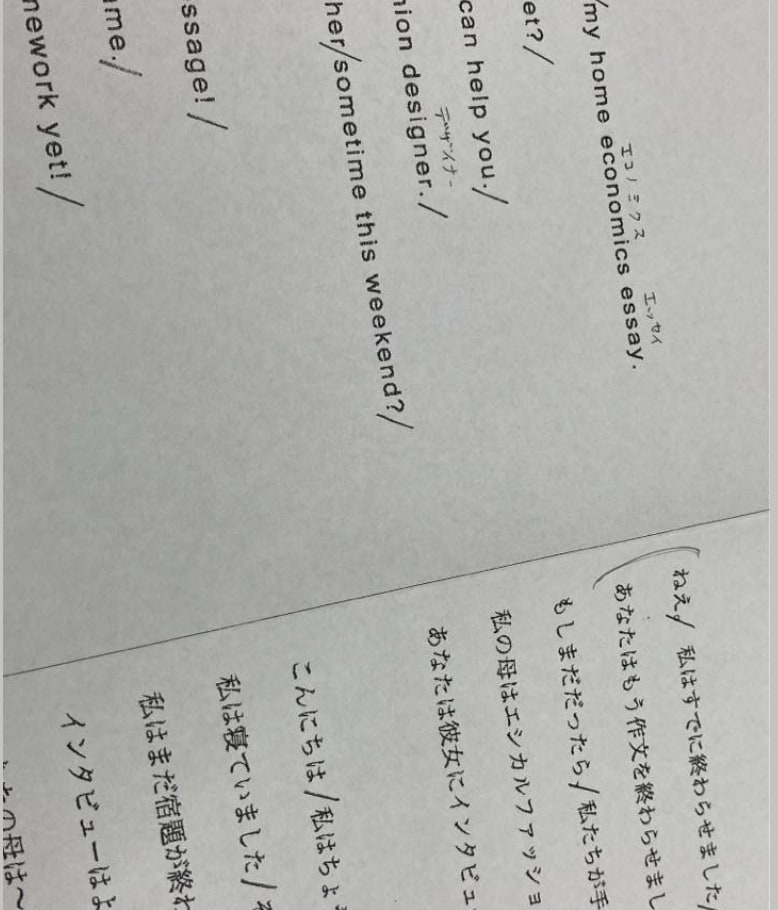 /my home economics essay.
エコノミクス エッセイ
et?/
can help you./
nion designer./
デザイナー
her/sometime this weekend?/
ssage!/
me./
nework yet!/
ねえ/ 私はすでに終わらせました/
あなたはもう作文を終わらせまし
もしまだだったら/私たちが手
私の母はエシカルファッショ
あなたは彼女にインタビュ
こんにちは/私はちょ
私は寝ていました/
私はまだ宿題が終わ
インタビューはよ
の母は〜